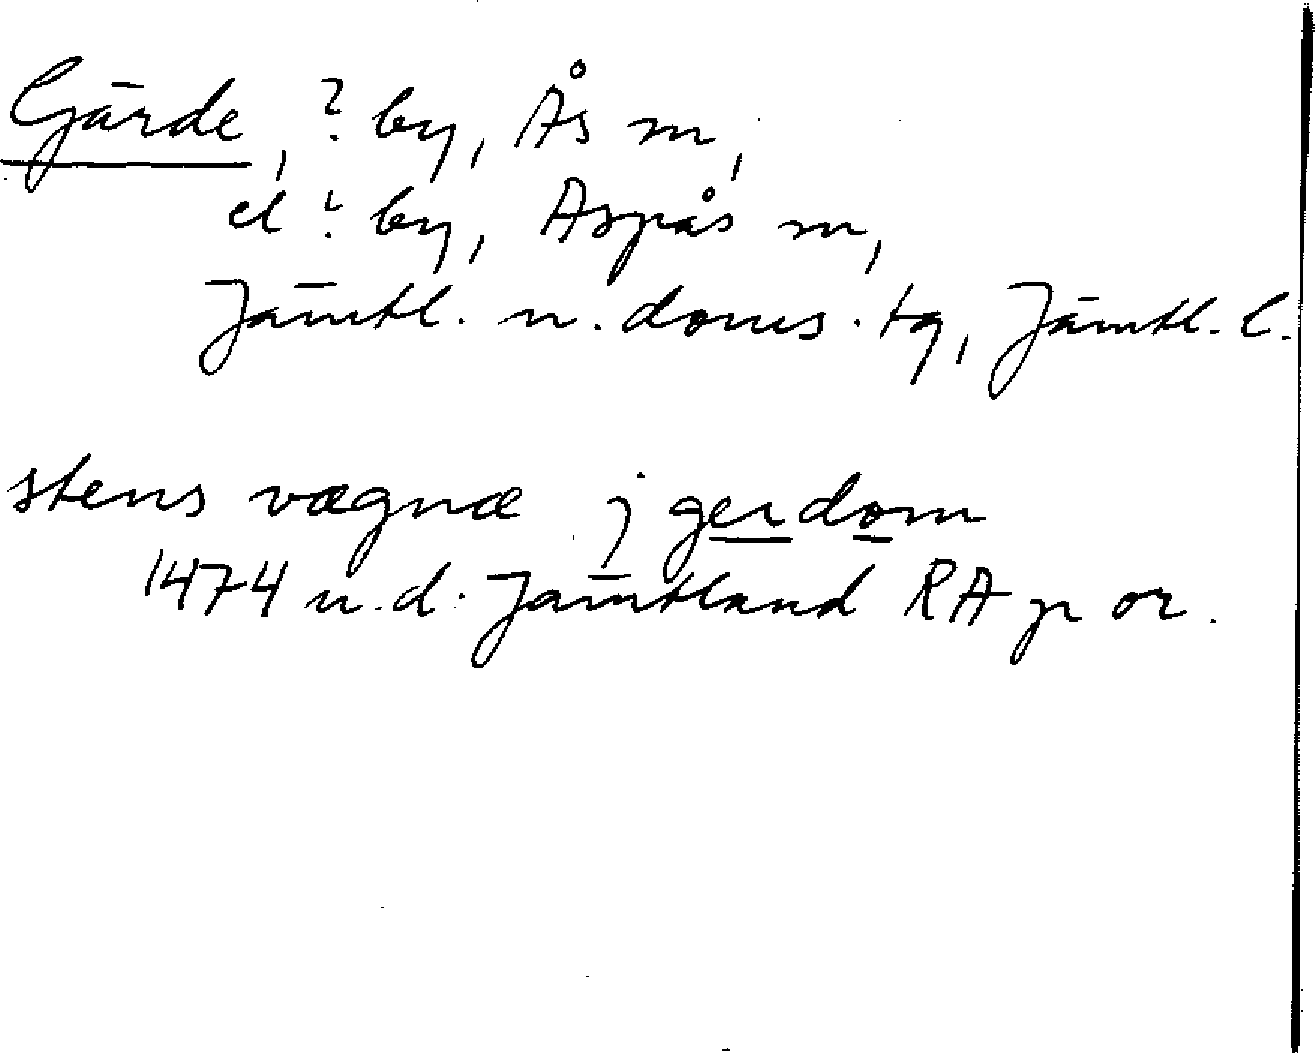 Gärde, ? by, Ås sn,
el ? by, Aspås sn,
Jämtl. n. doms. tg, Jämtl. l.
stens vægnæ j gerdom
1474 u.d. Jämtland RA p or.